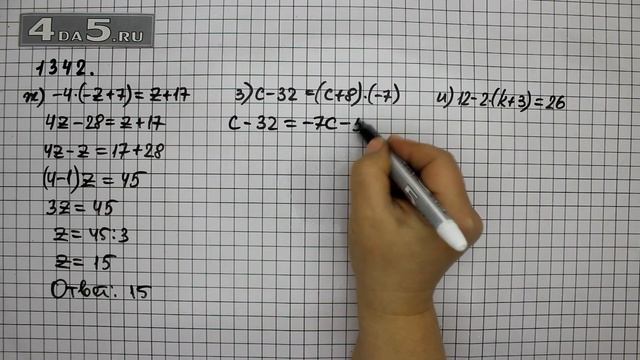 4DA5.RU
1342.
ж) -4·(-z+7)=z+17
4z-28=z+17
4z-z=17+28
(4-1)z=45
3z=45
z=45:3
z=15
Ответ: 15
з) c-32=(c+8)·(-7)
c-32=-7c-
и) 12-2·(k+3)=26